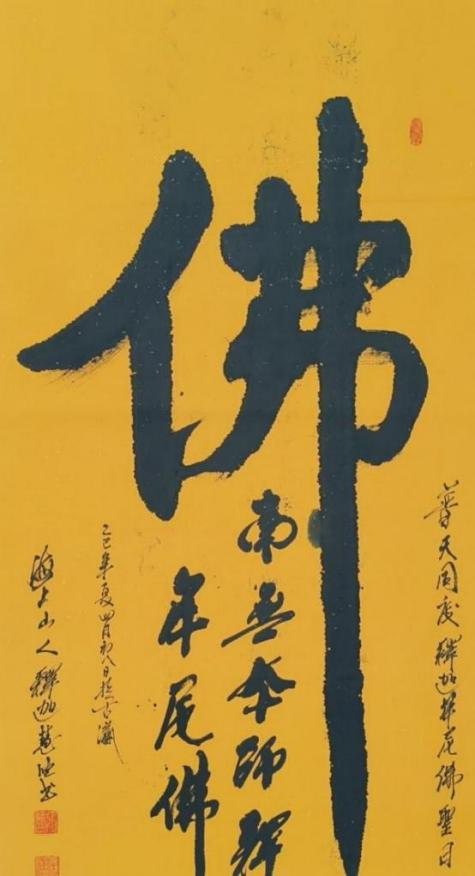 佛
普天同慶釋迦牟尼佛聖日
南無本師釋
牟尼佛
乙巳年夏四月初八日於古瀛
海上山人釋迦慧書